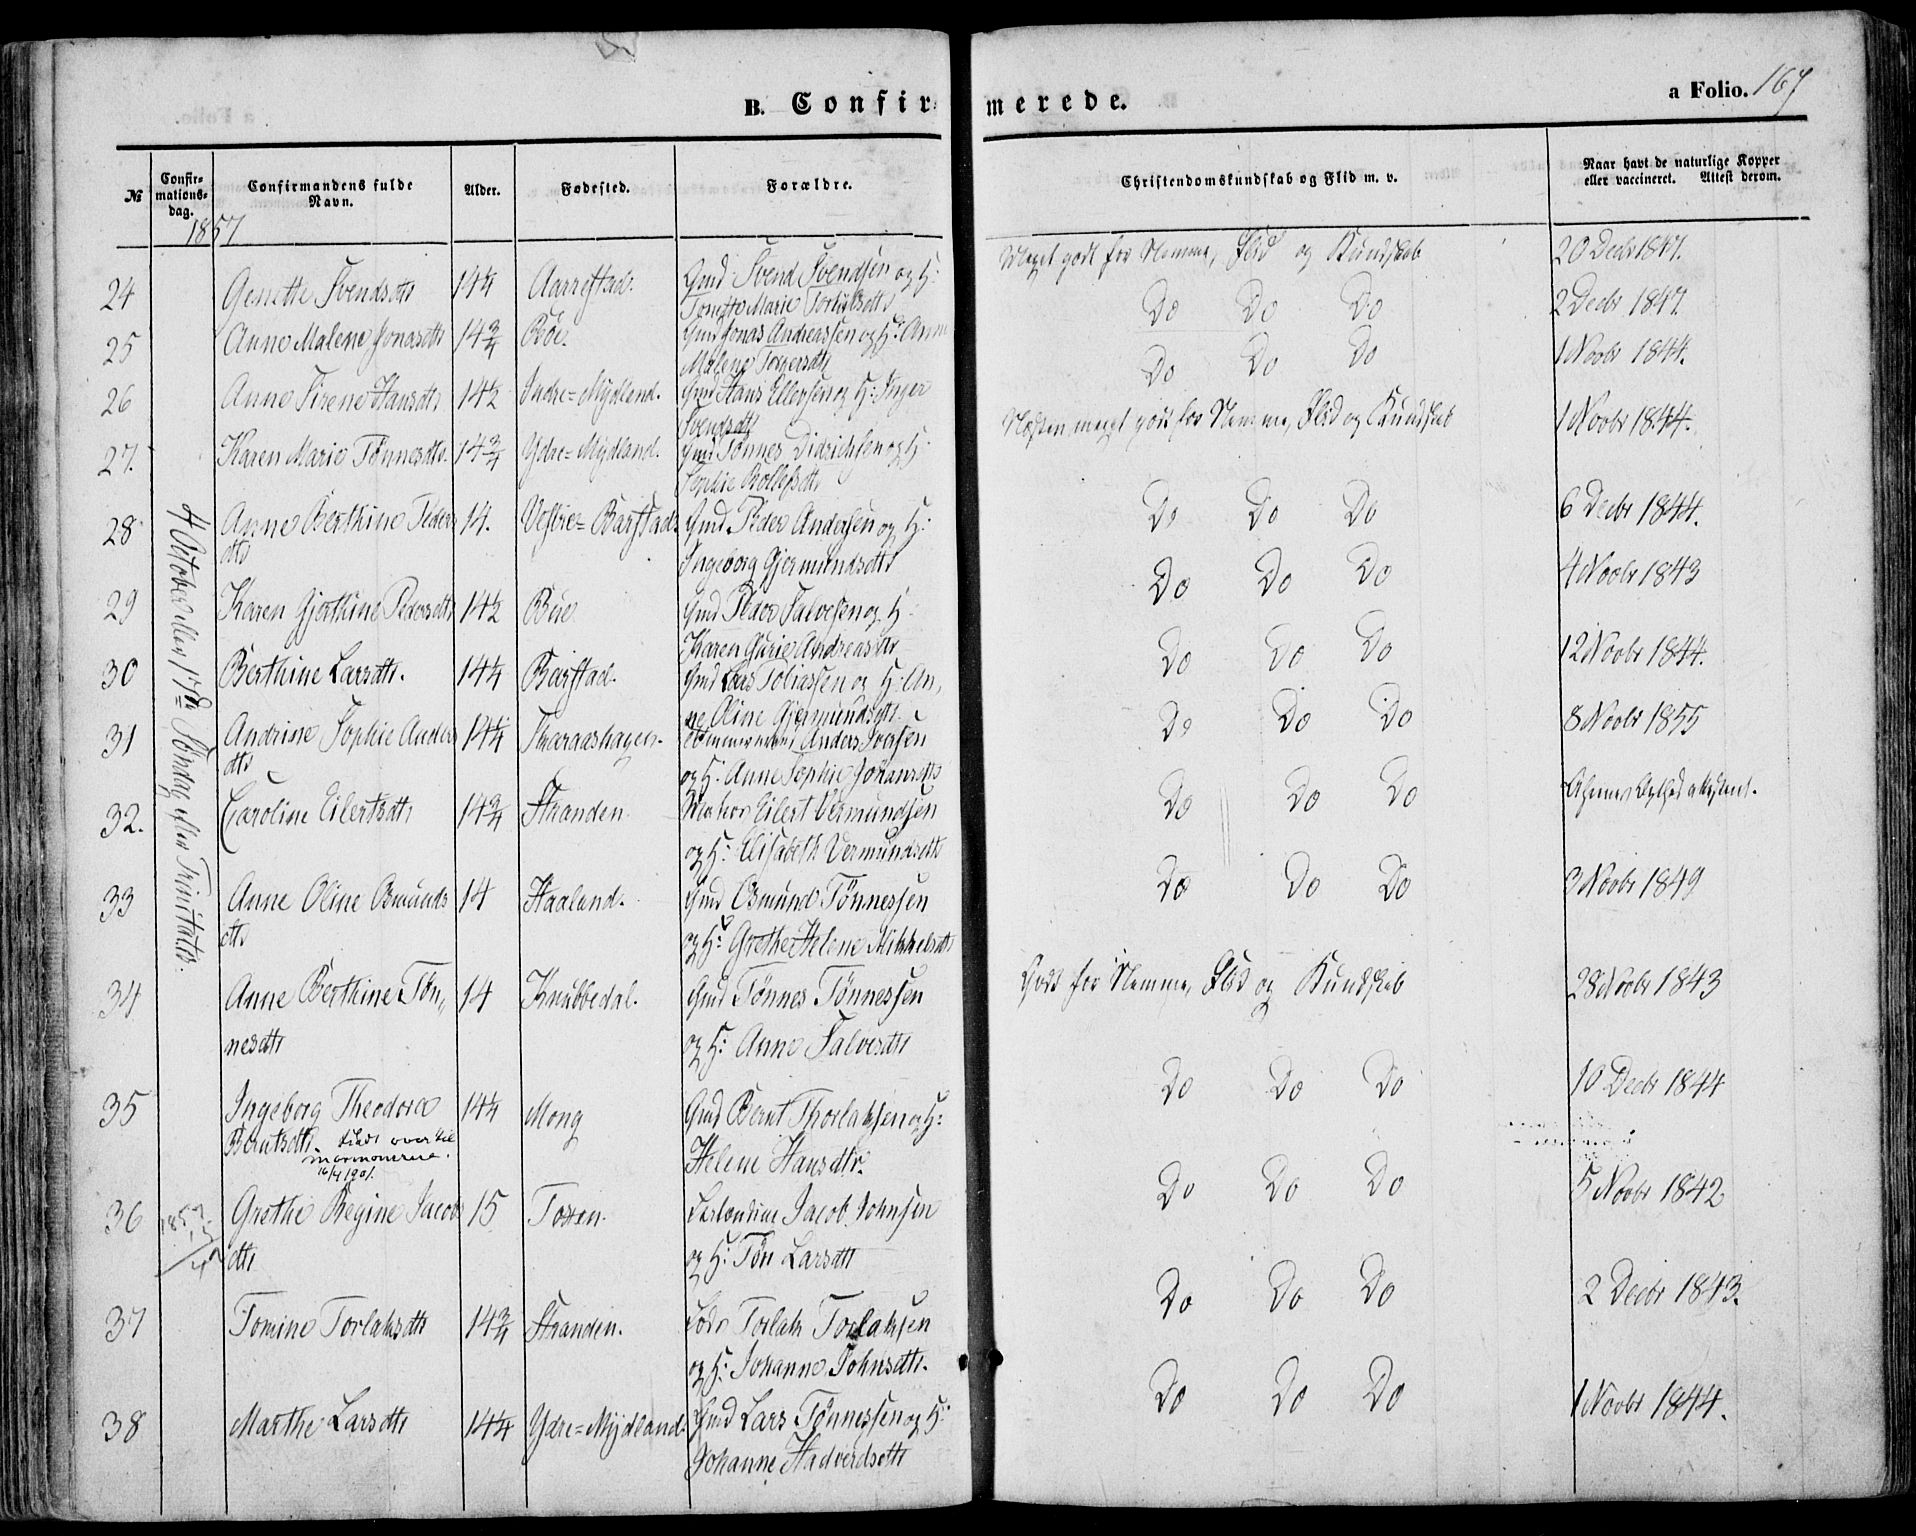 B. Confirmerede.
a Folio. 167
№
Confirmationsdag.
Confirmandens fulde Navn.
Alder.
Fødested.
Forældre.
Christendomskundskab og Flid m. v.
Naar havt de naturlige Kopper eller vaccineret. Attest derom.
1857
4 October eller 17de Søndag efter Trinitatis.
24 Genette Svendsdtr 14¼ Aarrestad. Gmd Svend Svendsen og H:
Tonette Marie Torkildsdtr
Meget godt for Nemme, Flid og Kundskab 20 Decbr 1847.
25 Anne Malene Jonasdtr 14¾ Bøe. Gmd Jonas Andreassen og H: Anne
Malene Torgersdtr
Do Do Do 2 Decbr 1847.
26 Anne Sirene Hansdtr 14½ Indre=Mydland. Gmd Hans Ellevsen og H: Inger
Svendsdtr
Do Do Do 1 Novbr 1844.
27. Karen Marie Tønnesdtr. 14¾ Ydre=Mydland. Gmd Tønnes Didrichsen og H:
Sophie Rollefsdtr
Næsten meget godt for Nemme, Flid og Kundskab 1 Novbr 1844.
28 Anne Berthine Peders 14. Vestre=Barstad. Gmd Peder Andersen og H:
dtr Ingeborg Gjermundsdtr
Do Do Do 6 Decbr 1844.
29 Karen Gjorthine Pedersdtr 14½ Bue Gmd Peder Salvesen og H
Karen Gurie Andreasdtr
Do Do Do 4 Novbr 1843
30 Berthine Larsdtr. 14¼ Barstad. Gmd Lars Tobiassen og H: An,
ne Oline Gjermundsdtr.
Do Do Do 12 Novbr 1844.
31 Andrine Sophie Anders 14¼ Tharaashagen. Anders Iversen
dtr og H. Anne Sophie Johansdtr
Do Do Do 8 Novbr 1855
32. Caroline Eilertsdtr 14¾ Stranden. Eilert Vermundsen
og H: Elisabeth Vermundsdtr
Do Do Do
33 Anne Oline Osmunds 14 Haaland. Gmd Osmund Tønnessen
dtr og H: Grethe Helene Mikkelsdtr
Do Do Do Novbr 1849
34 Anne Berthine Tøn,, 14 Knabbedal. Gmd Tønnes Tønnessen
nesdtr og H: Anne Salvesdtr
Godt for Nemme, Flid og Kundskab 28 Novbr 1843
35 Ingeborg Theodora 14¼ Mong Gmd Bernt Thorlaksen og H:
Berntsdtr. traadt over til Helene Hansdtr.
mormonerne.
16/4 1901.
Do Do Do 10 Decbr 1844
36 Grethe Regine Jacobs 15 Tossen. Jacob Johnsen
dtr og H: Tøn Larsdtr
Do Do Do 5 Novbr 1842
37 Tomine Torlaksdtr 14¾ Stranden. Lods Torlak Torlaksen
og H: Johanne Johnsdtr.
Do Do Do 2 Decbr 1843.
38 Marthe Larsdtr 14¼ Ydre=Mydland. Gmd Lars Tønnessen og H:
Johanne Hadverdsdtr
Do Do Do 1 Novbr 1844.